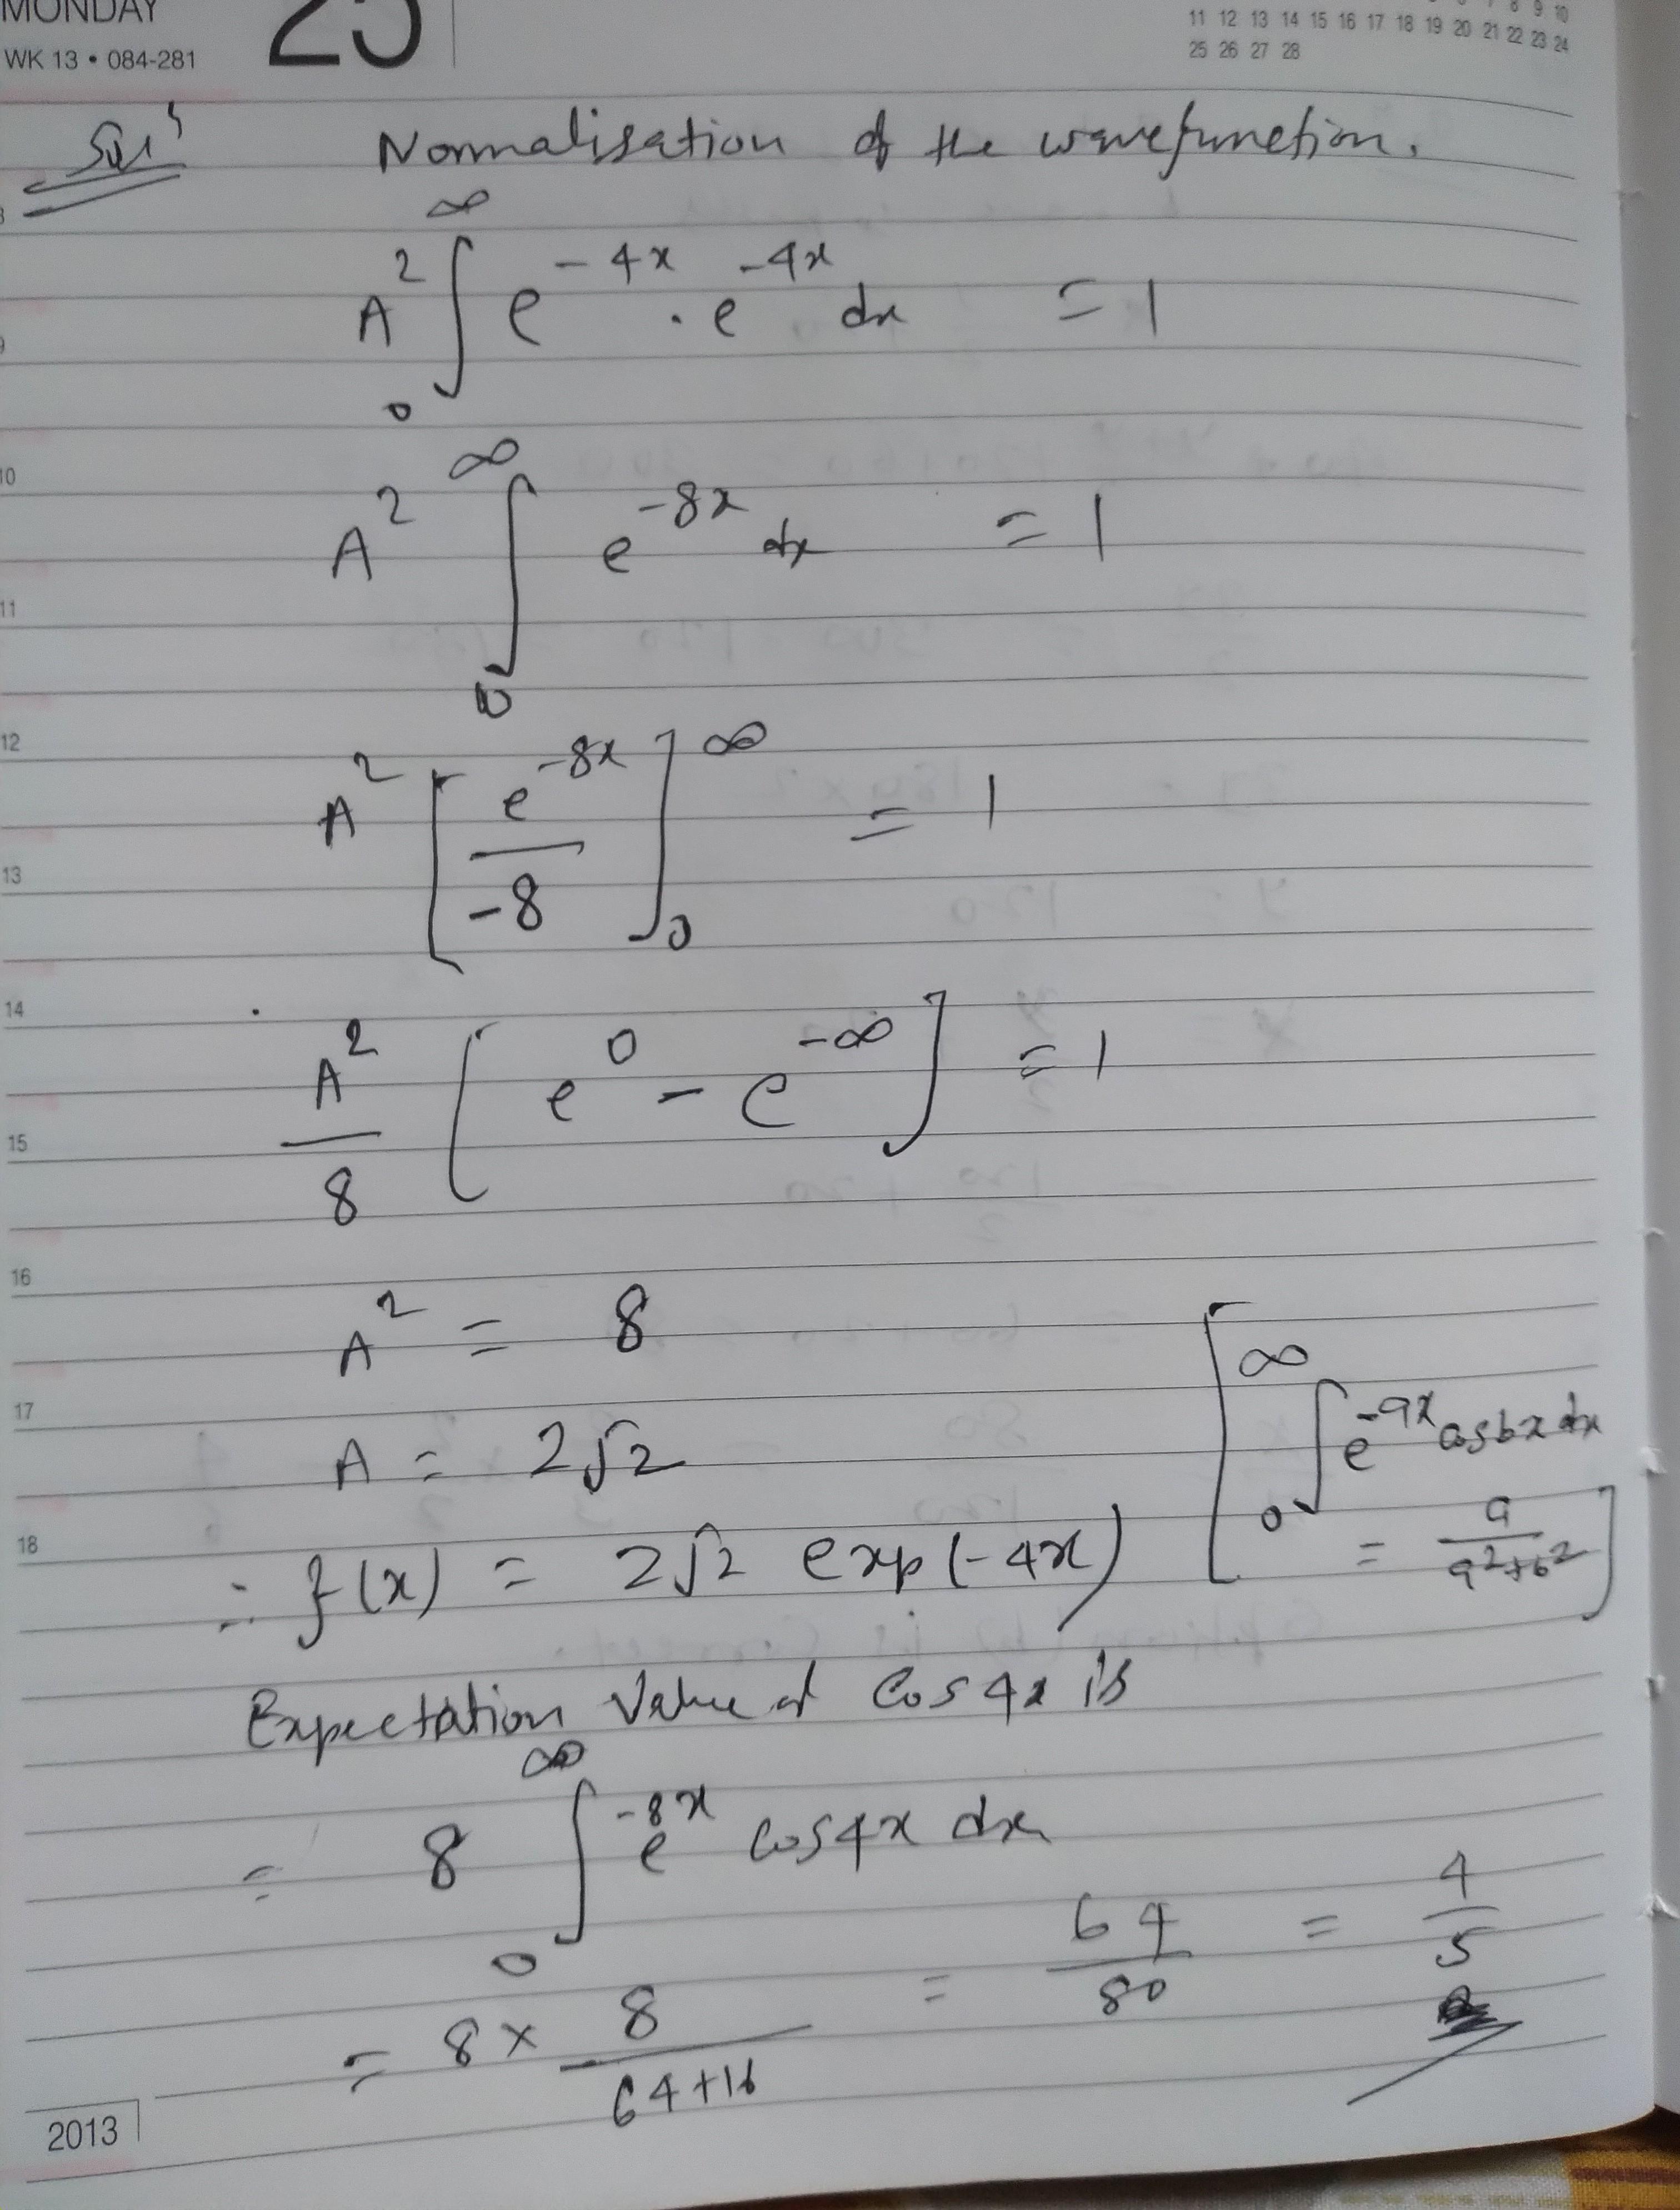 MONDAY 25
WK 13 • 084-281
7 8 9 10
11 12 13 14 15 16 17 18 19 20 21 22 23 24
25 26 27 28
Solⁿ Normalisation of the wavefunction.
A² ∫₀^∞ e^{-4x} . e^{-4x} dx = 1
A² ∫₀^∞ e^{-8x} dx = 1
A² [e^{-8x}/-8]₀^∞ = 1
A²/8 [e^0 - e^{-∞}] = 1
A² = 8
A = 2√2
[∫₀^∞ e^{-ax} cosbx dx
= a/(a²+b²)]
∴ f(x) = 2√2 exp(-4x)
Expectation Value of Cos 4x is
= 8 ∫₀^∞ e^{-8x} cos4x dx
= 8 × 8/(64+16) = 64/80 = 4/5
10
11
12
13
14
15
16
17
18
2013